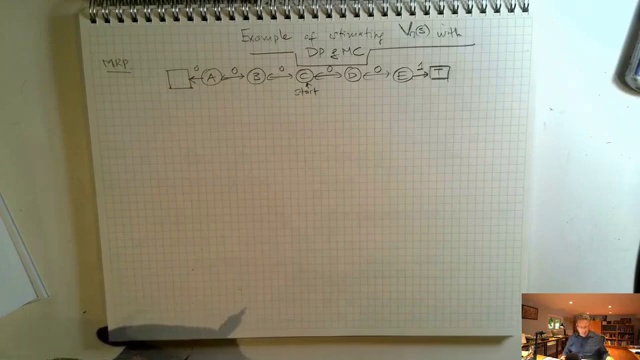 Example of estimating Vπ(s) with
DP & MC
MRP
0 0 0 0 0 1
A B C D E T
start